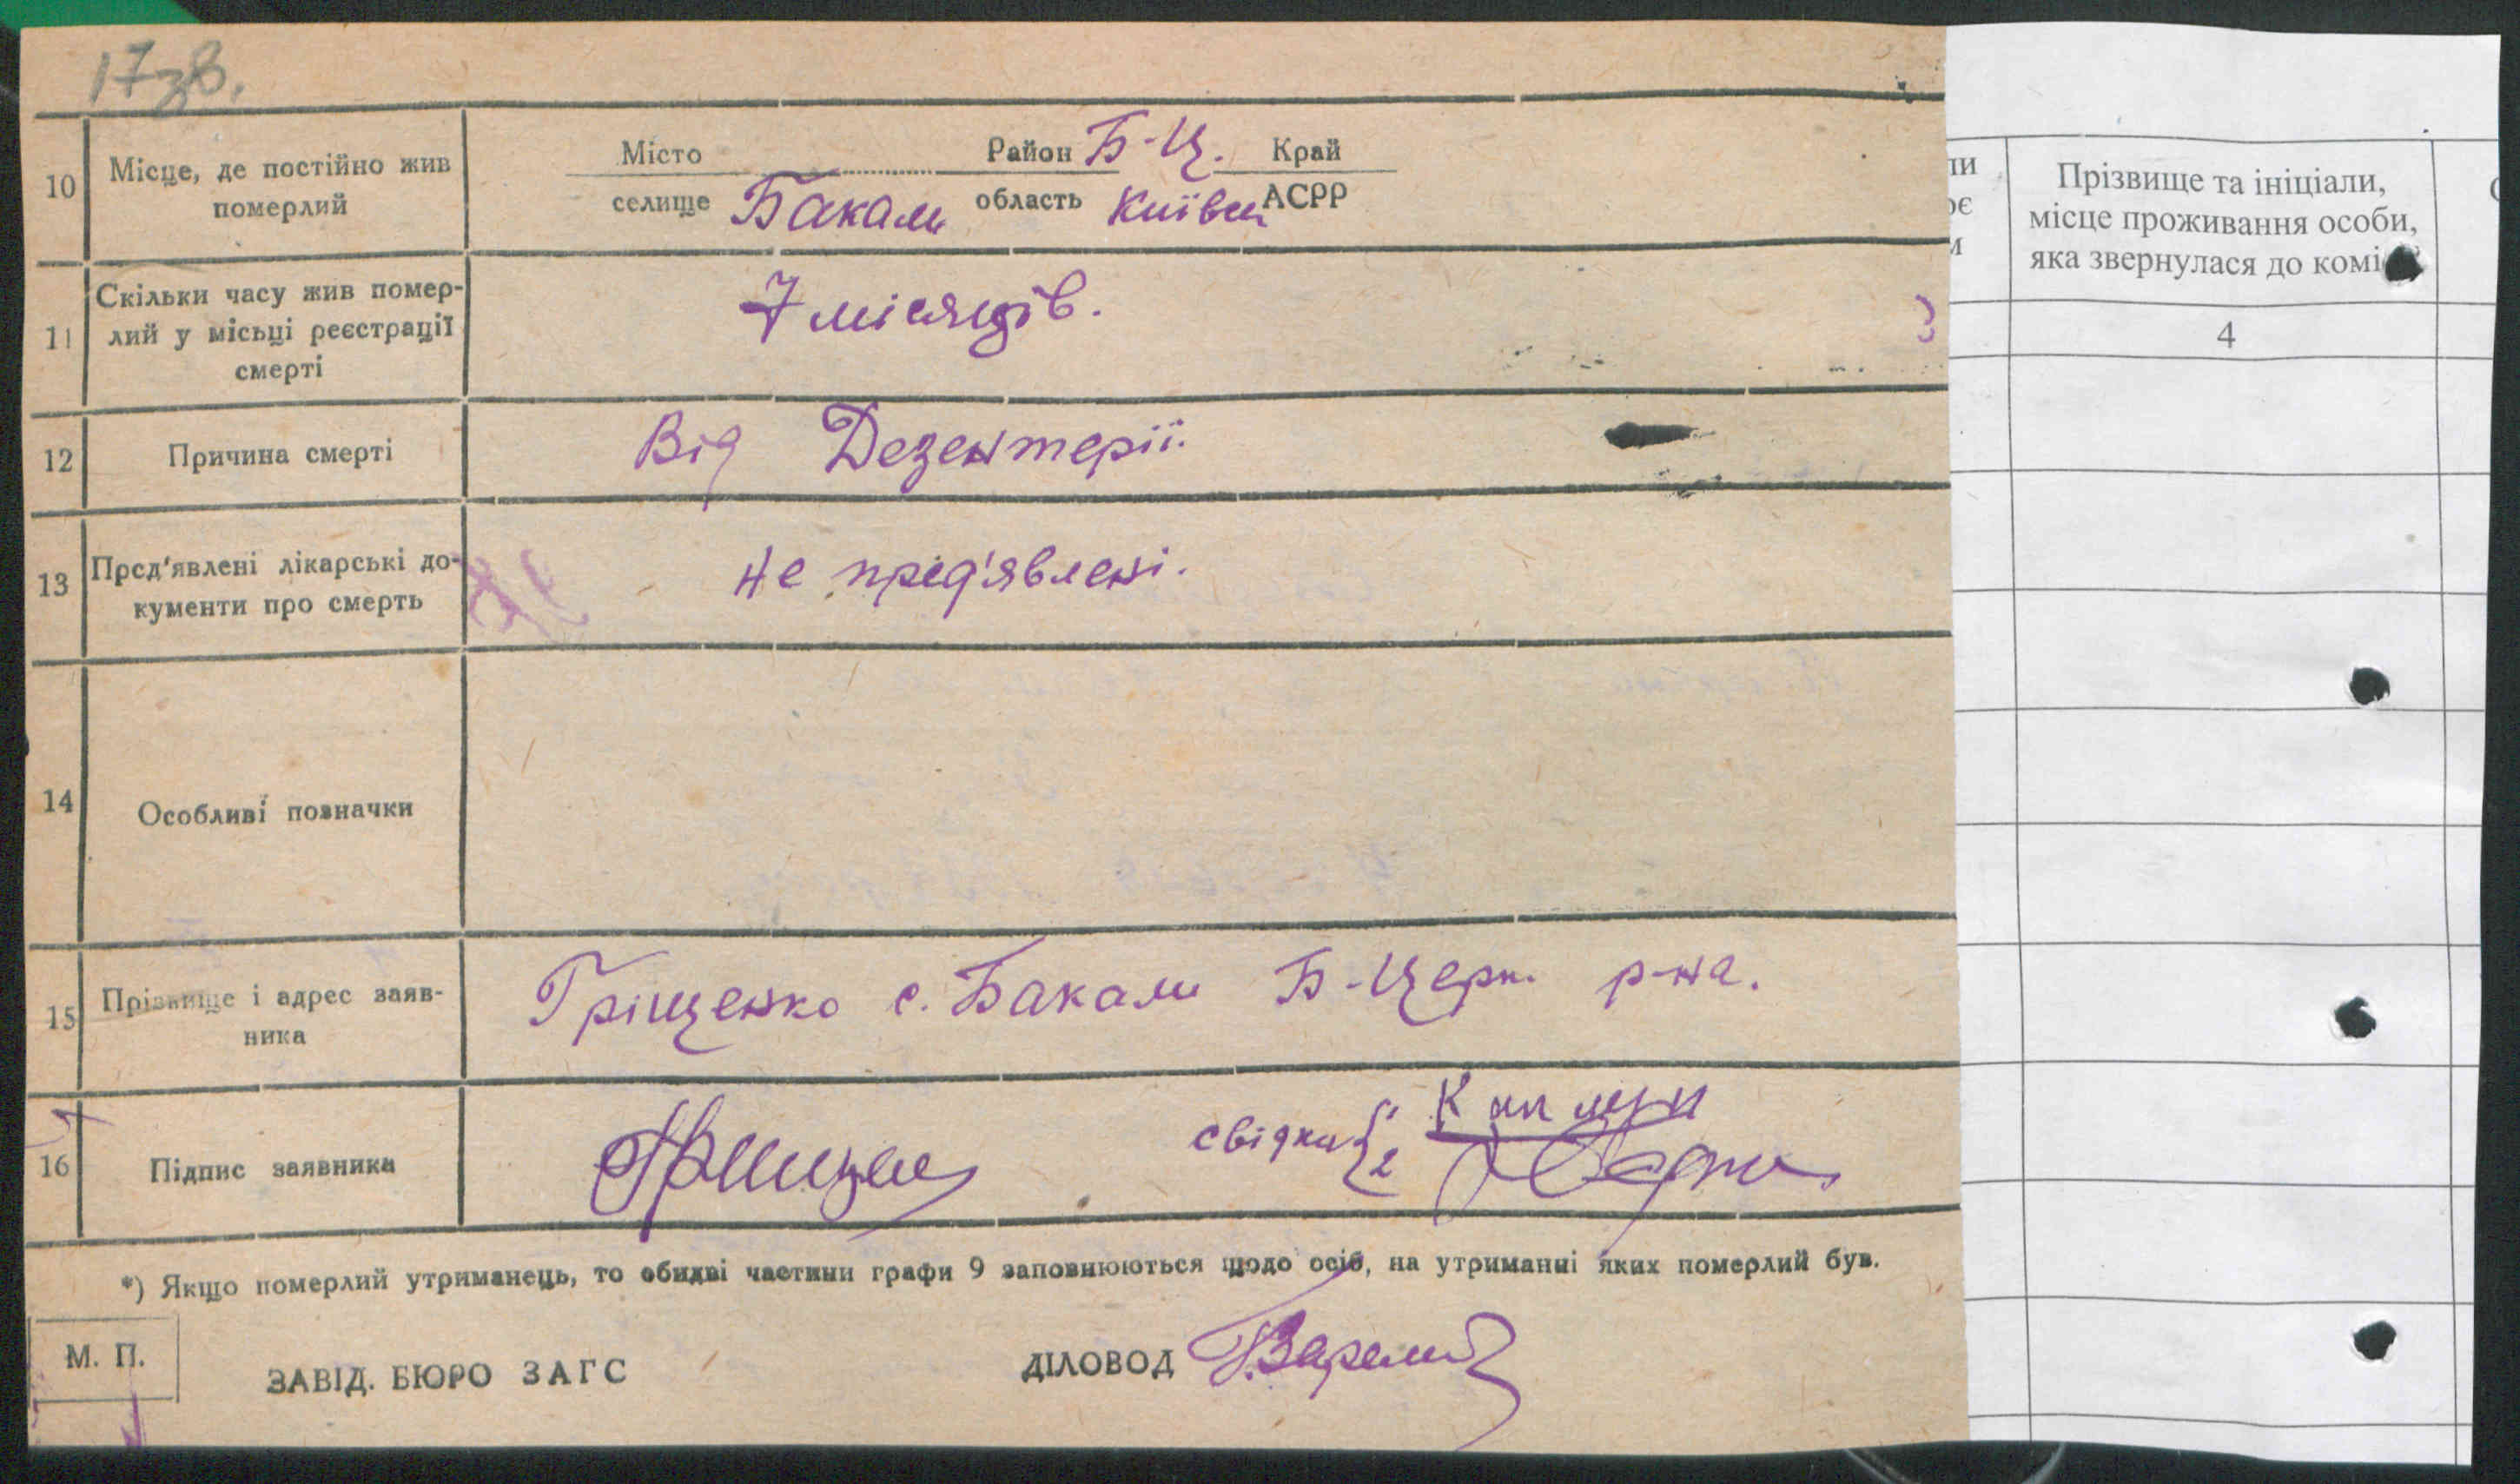 17зв.
10 Місце, де постійно жив померлий
Місто Район Б-Ц. Край
селище Бакали область Київськ АСРР
11 Скільки часу жив помер-
лий у місьці реєстрації
смерті
7 місяців.
12 Причина смерті
Від Дезентерії.
13 Пред'явлені лікарські до-
кументи про смерть
не пред'явлені.
14 Особливі позначки
15 Прізвище і адрес заяв-
ника
Гріщенко с. Бакали Б-Церк. р-на.
16 Підпис заявника
свідки 1
2
*) Якщо померлий утриманець, то обидві частини графи 9 заповнюються щодо осіб, на утриманні яких померлий був.
М. П.
ЗАВІД. БЮРО ЗАГС
ДІЛОВОД
Прізвище та ініціали,
місце проживання особи,
яка звернулася до комі
4